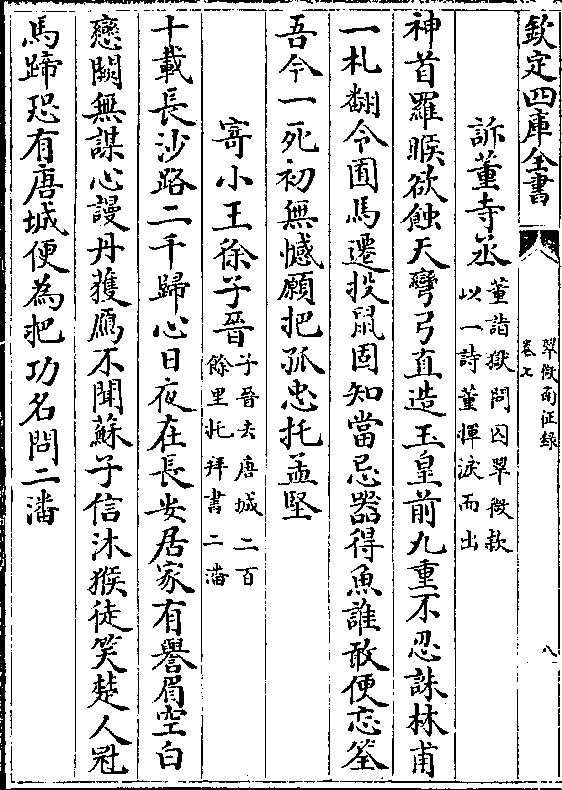 欽定四庫全書
翠微南征錄
卷七
八
訴董寺丞
董詣獄問囚翠微款
以一詩董揮淚而出
神首羅睺欲蝕天彎弓直造玉皇前九重不忍誅林甫
一札翻令囿馬遷投鼠固知當忌器得魚誰敢便忘筌
吾今一死初無憾願把孤忠托孟堅
寄小王徐子晉
子晉去唐城二百
餘里托拜書二潘
十載長沙路二千歸心日夜在長安居家有譽眉空白
戀闕無謀心謾丹獲鴈不聞蘇子信沐猴徒笑楚人冠
馬蹄恐有唐城便為把功名問二潘